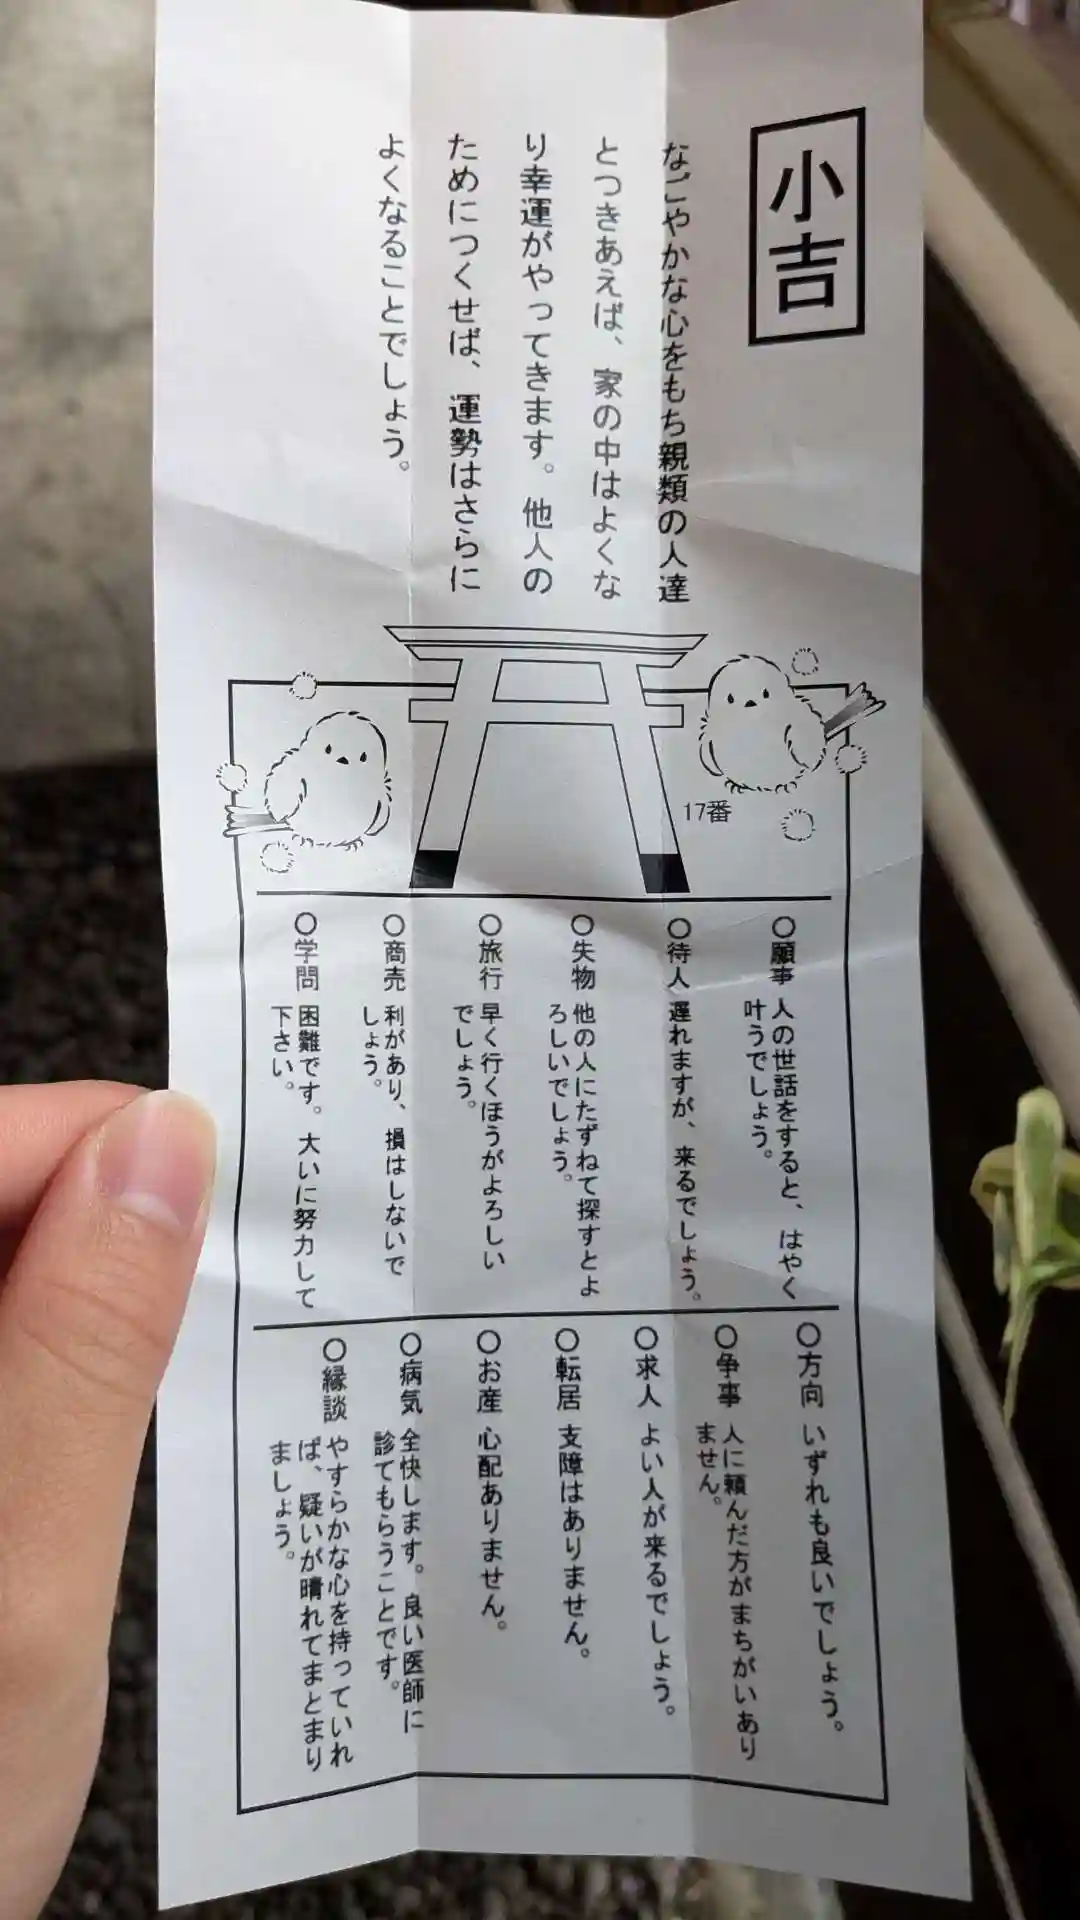 小吉
なごやかな心をもち親類の人達
とつきあえば、家の中はよくな
り幸運がやってきます。他人の
ためにつくせば、運勢はさらに
よくなることでしょう。
17番
○願事 人の世話をすると、はやく
叶うでしょう。
○待人 遅れますが、来るでしょう。
○失物 他の人にたずねて探すとよ
ろしいでしょう。
○旅行 早く行くほうがよろしい
でしょう。
○商売 利があり、損はしないで
しょう。
○学問 困難です。大いに努力して
下さい。
○方向 いずれも良いでしょう。
○争事 人に頼んだ方がまちがいあり
ません。
○求人 よい人が来るでしょう。
○転居 支障はありません。
○お産 心配ありません。
○病気 全快します。良い医師に
診てもらうことです。
○縁談 やすらかな心を持っていれ
ば、疑いが晴れてまとまり
ましょう。